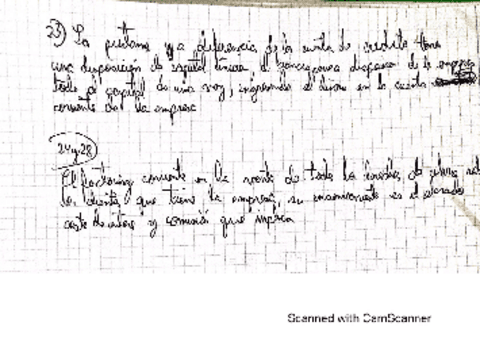 23) La prestamo y a diferencia de la cuenta de credito tiene
una disposición de capital única el concesiona dispone de la empresa
todo el capital de una vez, ingresando el dinero en la cuenta
corriente de la empresa
24y28
El factoring consiste en la venta de todos los creditos de
los clientes que tiene la empresa, su inconveniente es el elevado
coste de interes y comision que implica
Scanned with CamScanner